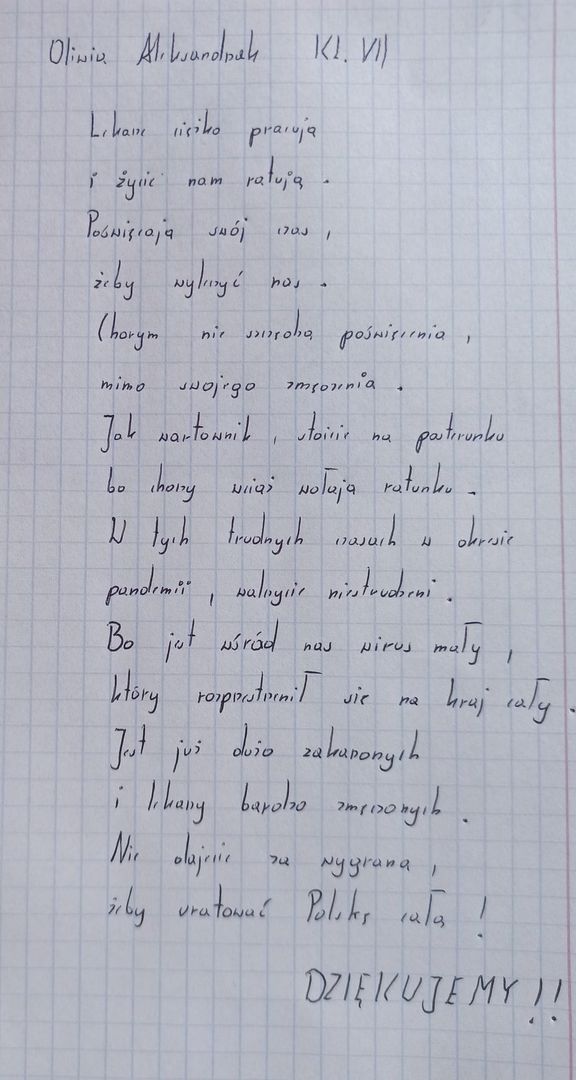 Oliwia Aleksandrzak Kl. VII
Lekarze ciężko pracują
i życie nam ratują.
Poświęcają swój czas,
żeby wyleczyć nas.
Chorym nie szczędzą poświęcenia,
mimo swojego zmęczenia.
Jak wartownik, stoicie na posterunku
bo chorzy wciąż wołają ratunku.
W tych trudnych czasach w okresie
pandemii, walczycie niestrudzeni.
Bo jest wśród nas wirus mały,
który rozprzestrzenił się na kraj cały.
Jest już dużo zakażonych
i lekarzy bardzo zmęczonych.
Nie dajecie za wygraną,
żeby uratować Polskę całą!
DZIĘKUJEMY!!